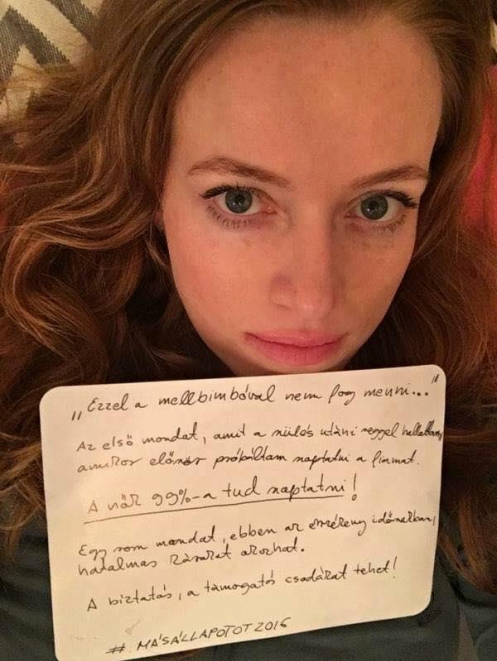 „Ezzel a mellbimbóval nem fog menni..."
Az első mondat, amit a szülés utáni reggel hallottam,
amikor először próbáltam szoptatni a fiamat.
A nők 99%-a tud szoptatni!
Egy rossz mondat, ebben az érzékeny időszakban,
hatalmas károkat okozhat.
A biztatás, a támogatás csodákat tehet!
#MÁSÁLLAPOTOT2016